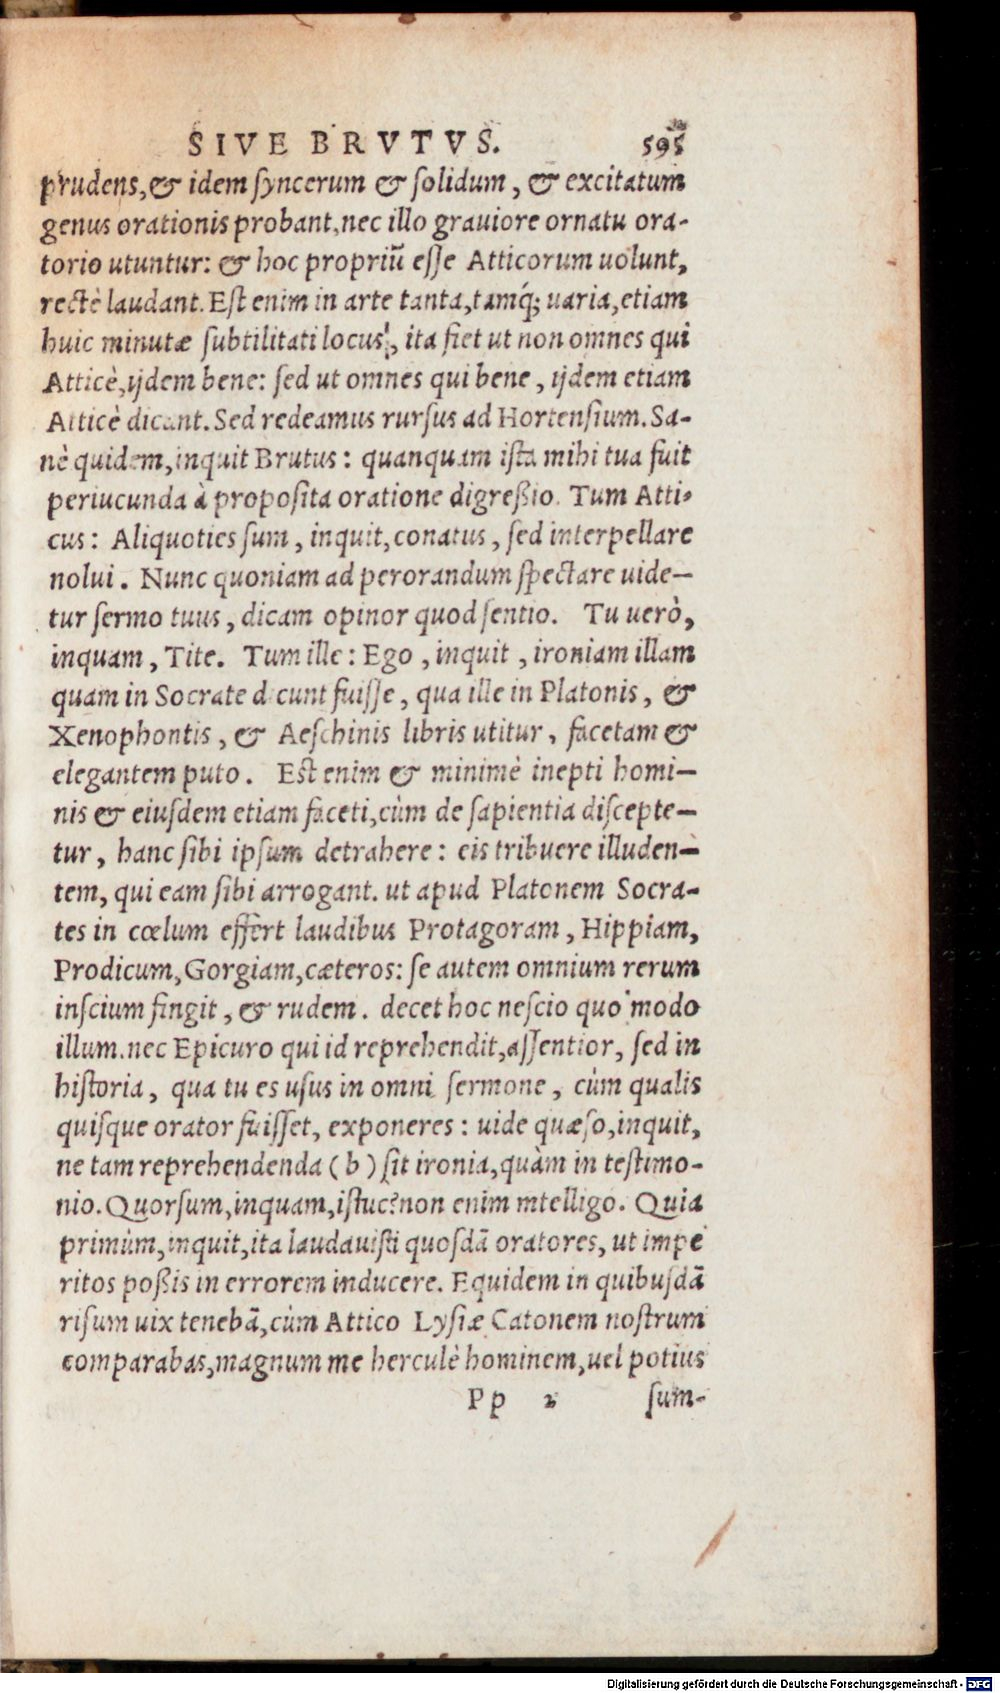 SIVE BRVTVS. 595
prudens, & idem syncerum & solidum, & excitatum
genus orationis probant, nec illo grauiore ornatu ora-
torio utuntur: & hoc propriũ esse Atticorum uolunt,
rectè laudant. Est enim in arte tanta, tamq́; uaria, etiam
huic minutæ subtilitati locus, ita fiet ut non omnes qui
Atticè, ijdem bene: sed ut omnes qui bene, ijdem etiam
Atticè dicant. Sed redeamus rursus ad Hortensium. Sa-
nè quidem, inquit Brutus: quanquam ista mihi tua fuit
periucunda à proposita oratione digreßio. Tum Atti-
cus: Aliquoties sum, inquit, conatus, sed interpellare
nolui. Nunc quoniam ad perorandum spectare uide-
tur sermo tuus, dicam opinor quod sentio. Tu uerò,
inquam, Tite. Tum ille: Ego, inquit, ironiam illam
quam in Socrate dicunt fuisse, qua ille in Platonis, &
Xenophontis, & Aeschinis libris utitur, facetam &
elegantem puto. Est enim & minimè inepti homi-
nis & eiusdem etiam faceti, cùm de sapientia discepte-
tur, hanc sibi ipsum detrahere: eis tribuere illuden-
tem, qui eam sibi arrogant. ut apud Platonem Socra-
tes in cœlum effert laudibus Protagoram, Hippiam,
Prodicum, Gorgiam, cæteros: se autem omnium rerum
inscium fingit, & rudem. decet hoc nescio quo modo
illum. nec Epicuro qui id reprehendit, assentior, sed in
historia, qua tu es usus in omni sermone, cùm qualis
quisque orator fuisset, exponeres: uide quæso, inquit,
ne tam reprehendenda (b) sit ironia, quàm in testimo-
nio. Quorsum, inquam, istuc? non enim intelligo. Quia
primùm, inquit, ita laudauisti quosdã oratores, ut impe
ritos poßis in errorem inducere. Equidem in quibusdã
risum uix tenebã, cùm Attico Lysiæ Catonem nostrum
comparabas, magnum me herculè hominem, uel potius
Pp 2 sum-
Digitalisierung gefördert durch die Deutsche Forschungsgemeinschaft - DFG